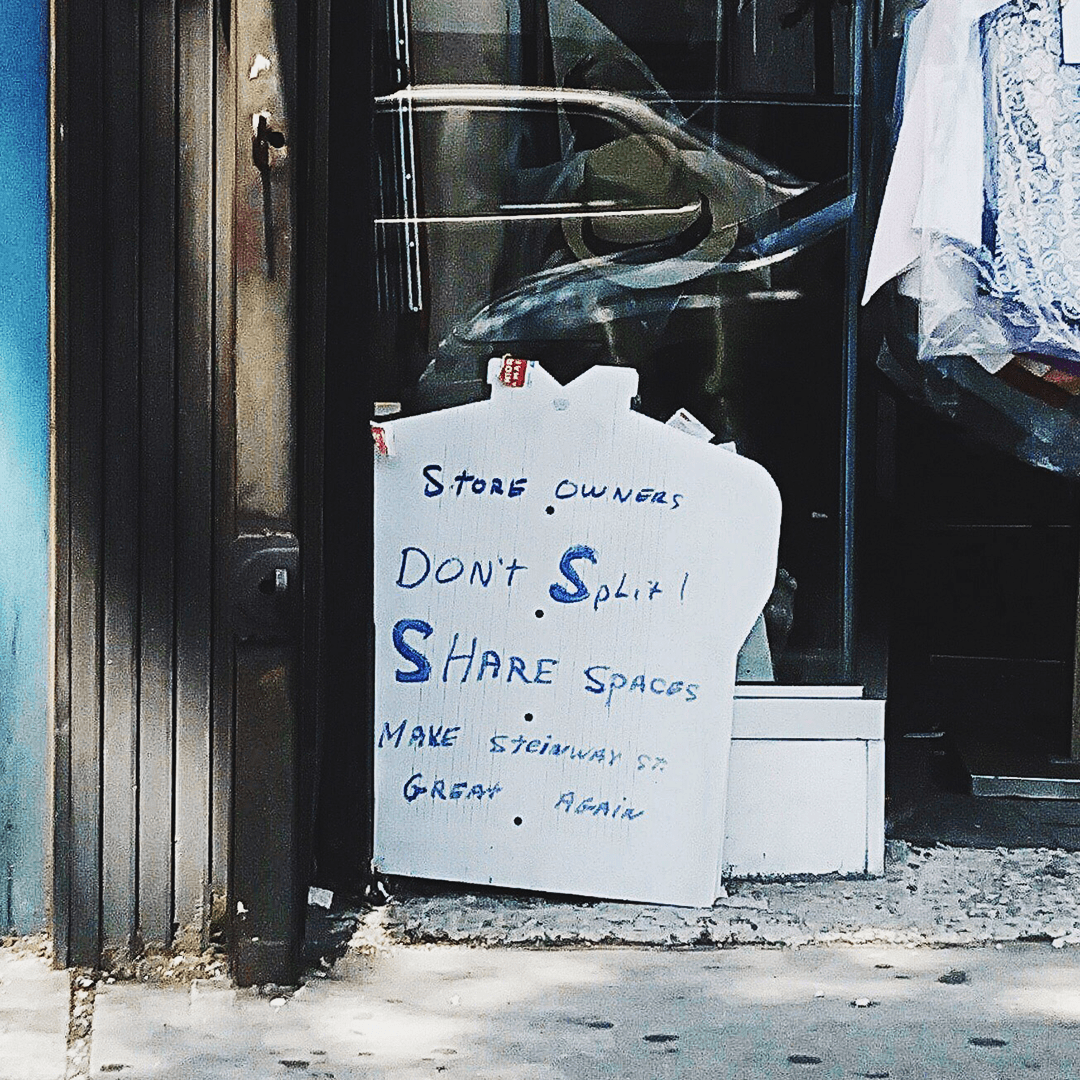 STORE OWNERS
DON't SpLit!
SHARE SPACES
MAKE SteiNWAY St.
GREAT AGAIN